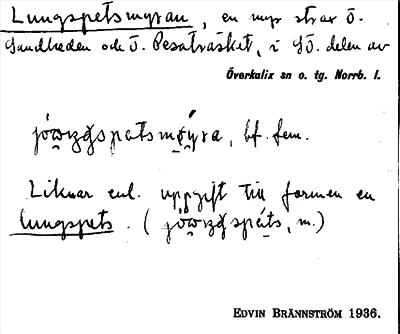 Lungspetsmyran, en myr strax ö.
Sandheden och ö. Pesaträsket, i SÖ. delen av
Överkalix sn o. tg. Norrb. l.
bf. fem.
Liknar enl. uppgift till formen en
lungspets. (
m.)
EDVIN BRÄNNSTRÖM 1936.